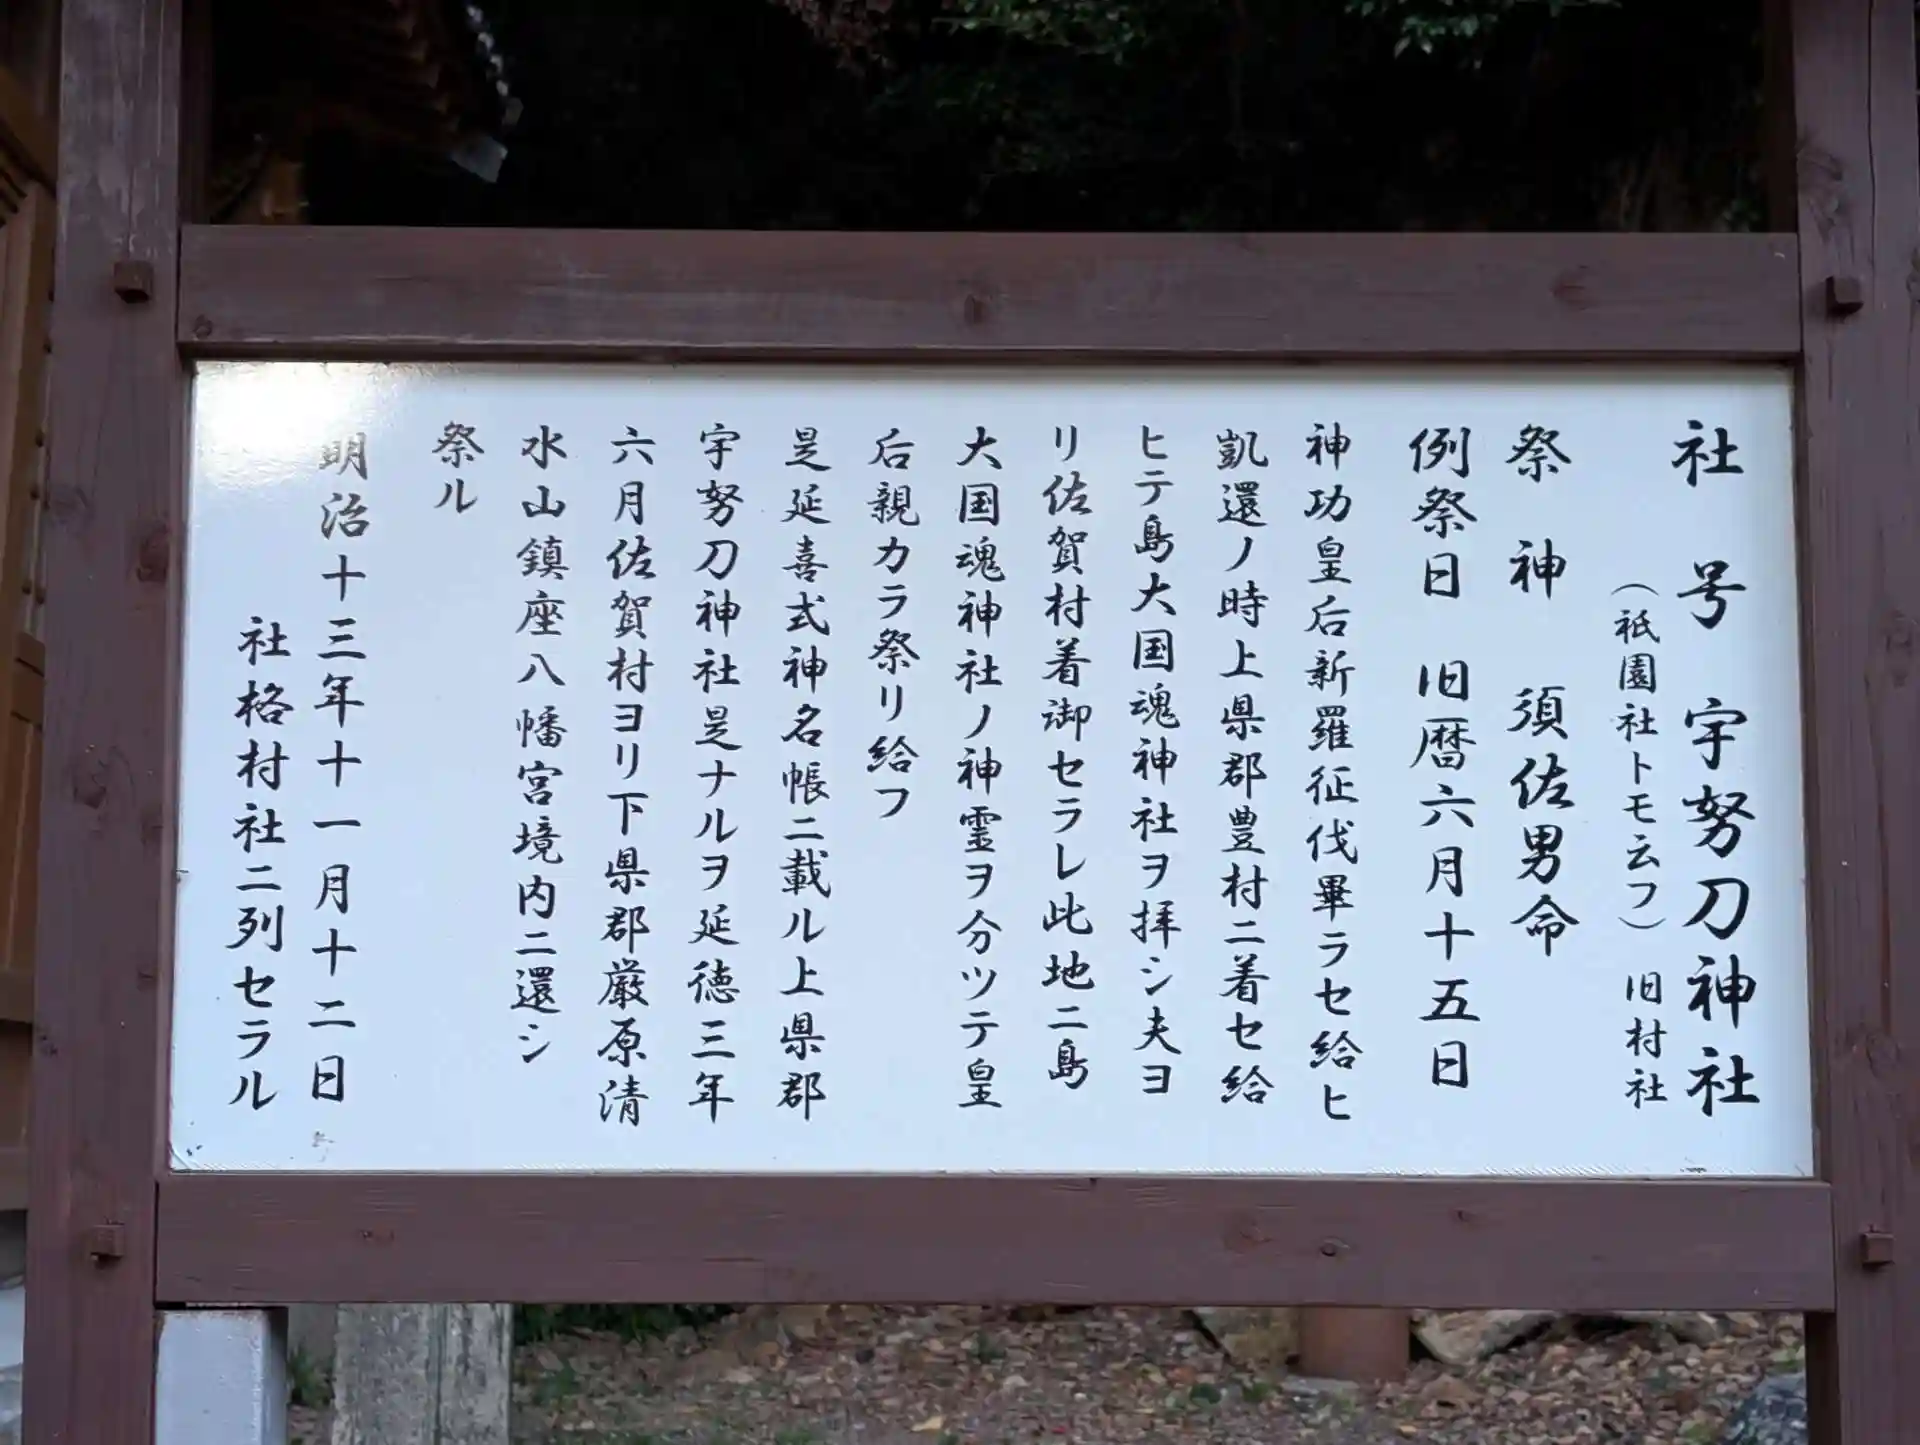 社号 宇努刀神社
（祇園社トモ云フ）旧村社
祭神 須佐男命
例祭日 旧暦六月十五日
神功皇后新羅征伐畢ラセ給ヒ
凱還ノ時上県郡豊村ニ着セ給
ヒテ島大国魂神社ヲ拝シ夫ヨ
リ佐賀村着御セラレ此地ニ島
大国魂神社ノ神霊ヲ分ツテ皇
后親カラ祭リ給フ
是延喜式神名帳ニ載ル上県郡
宇努刀神社是ナルヲ延徳三年
六月佐賀村ヨリ下県郡厳原清
水山鎮座八幡宮境内ニ還シ
祭ル
明治十三年十一月十二日
社格村社ニ列セラル